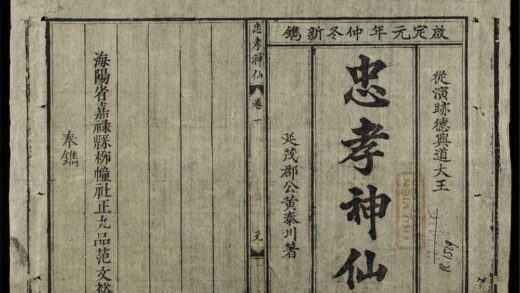 啟定元年仲冬新鐫
從演跡德興道大王
忠孝神仙
延茂郡公黃泰川著
THƯ VIỆN
R.1519
忠孝神仙 卷一
海陽省嘉祿縣柳幢社正九品范文裕
奉鐫